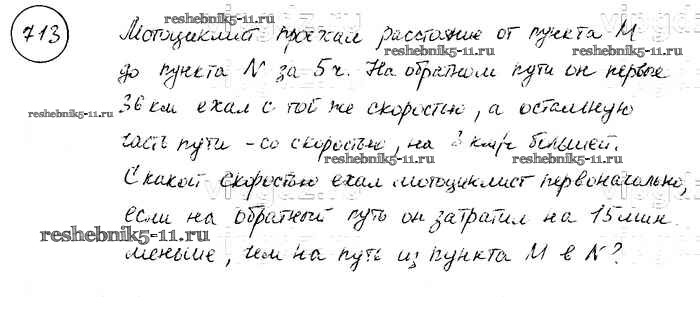 713
Мотоциклист проехал расстояние от пункта М
до пункта N за 5 ч. На обратном пути он первые
36 км ехал с той же скоростью, а остальную
часть пути - со скоростью, на 3 км/ч большей.
С какой скоростью ехал мотоциклист первоначально,
если на обратный путь он затратил на 15 мин
меньше, чем на путь из пункта М в N?
reshebnik5-11.ru
reshebnik5-11.ru
reshebnik5-11.ru
reshebnik5-11.ru
reshebnik5-11.ru
reshebnik5-11.ru
reshebnik5-11.ru
reshebnik5-11.ru